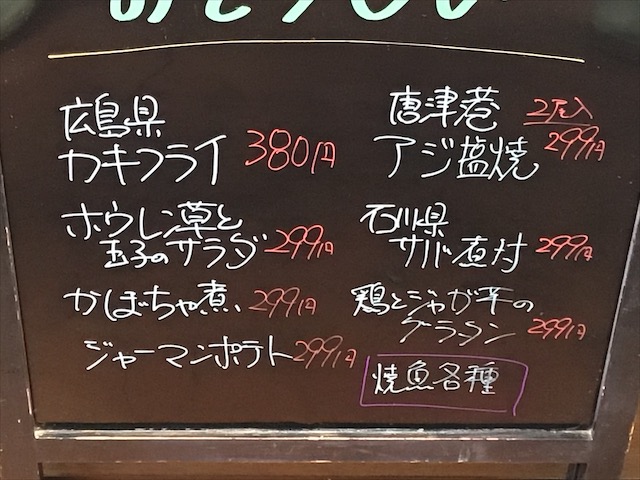 広島県
カキフライ 380円
ホウレン草と
玉子のサラダ 299円
かぼちゃ煮 299円
ジャーマンポテト 299円
唐津港 2尾入
アジ塩焼 299円
石川県
サバ煮付 299円
鶏とジャガ芋の
グラタン 299円
焼魚各種